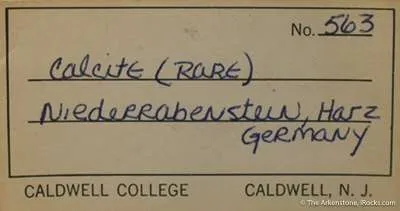 No. 563
Calcite (RARE)
Niederrabenstein, Harz
Germany
CALDWELL COLLEGE CALDWELL, N. J.
© The Arkenstone, iRocks.com